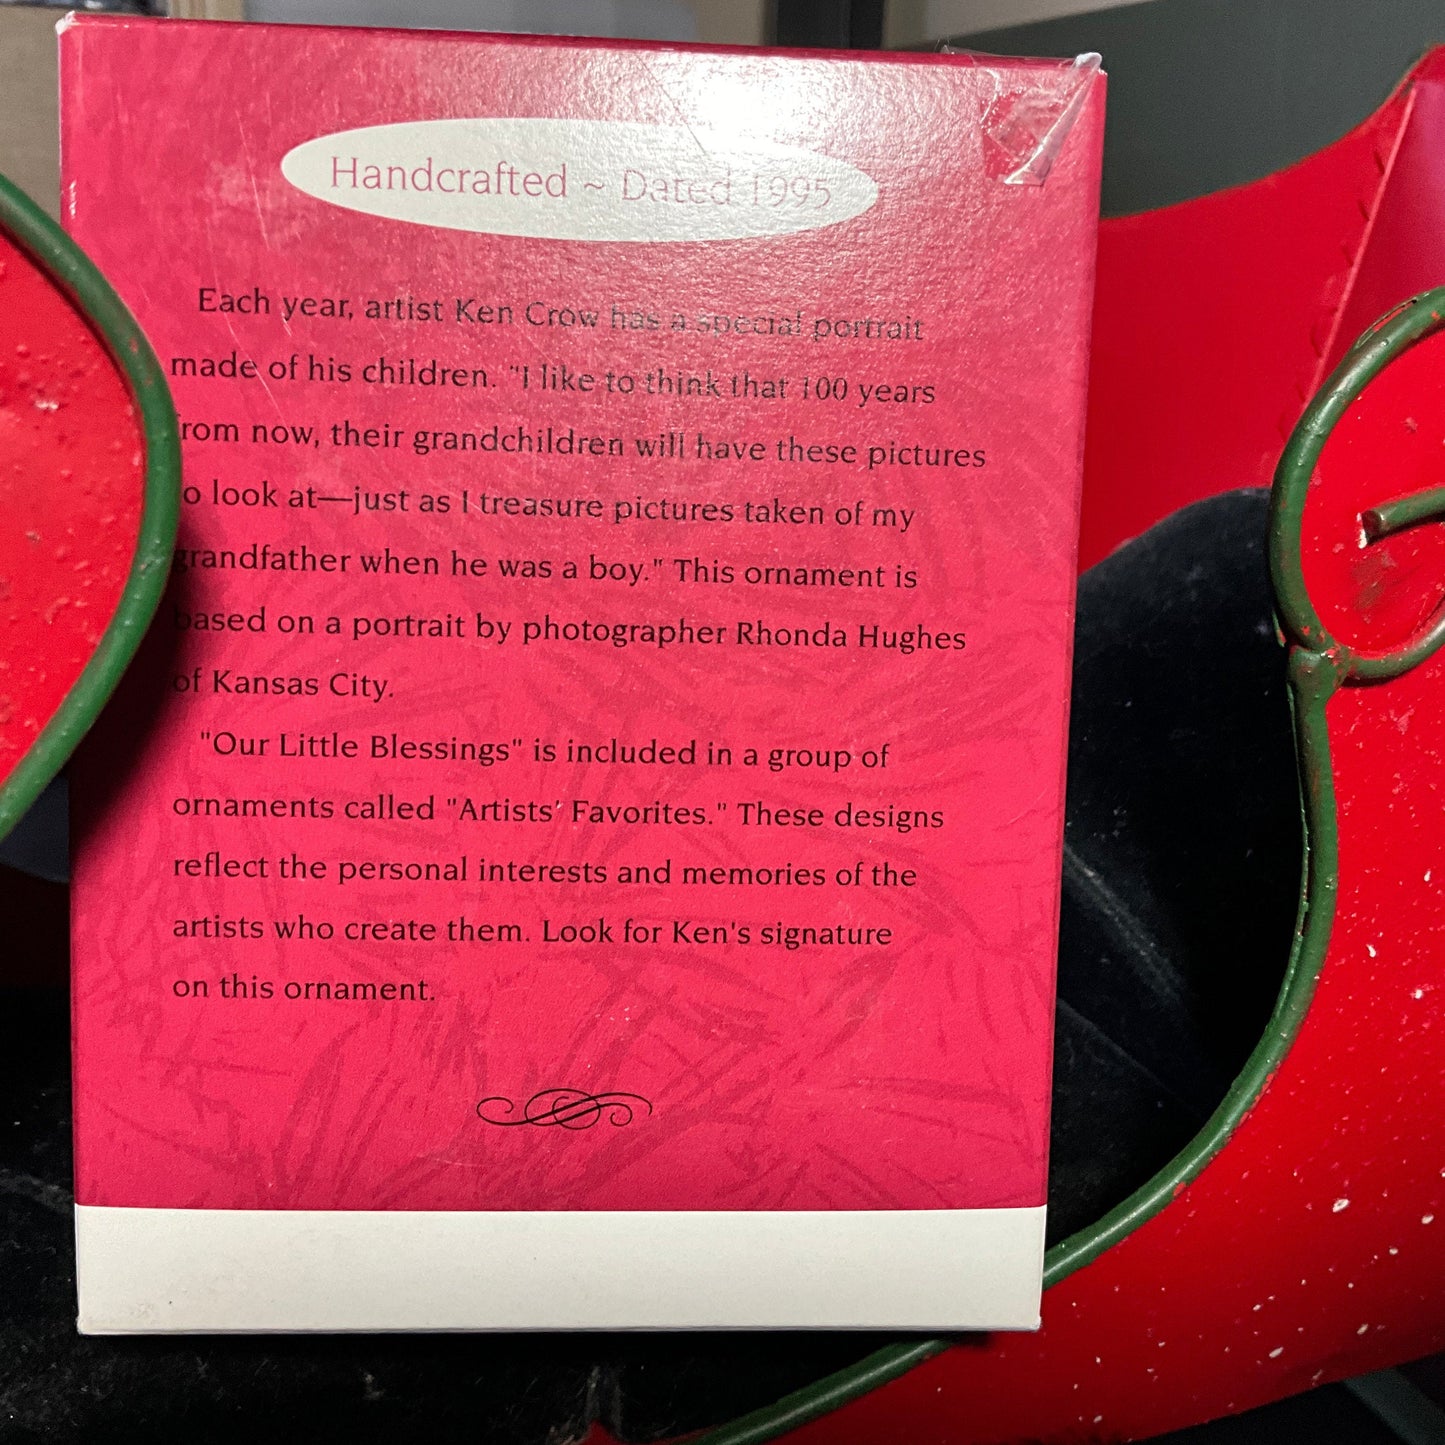 Handcrafted ~ Dated 1995
Each year, artist Ken Crow has a special portrait
made of his children. "I like to think that 100 years
rom now, their grandchildren will have these pictures
o look at—just as I treasure pictures taken of my
grandfather when he was a boy." This ornament is
based on a portrait by photographer Rhonda Hughes
of Kansas City.
"Our Little Blessings" is included in a group of
ornaments called "Artists' Favorites." These designs
reflect the personal interests and memories of the
artists who create them. Look for Ken's signature
on this ornament.